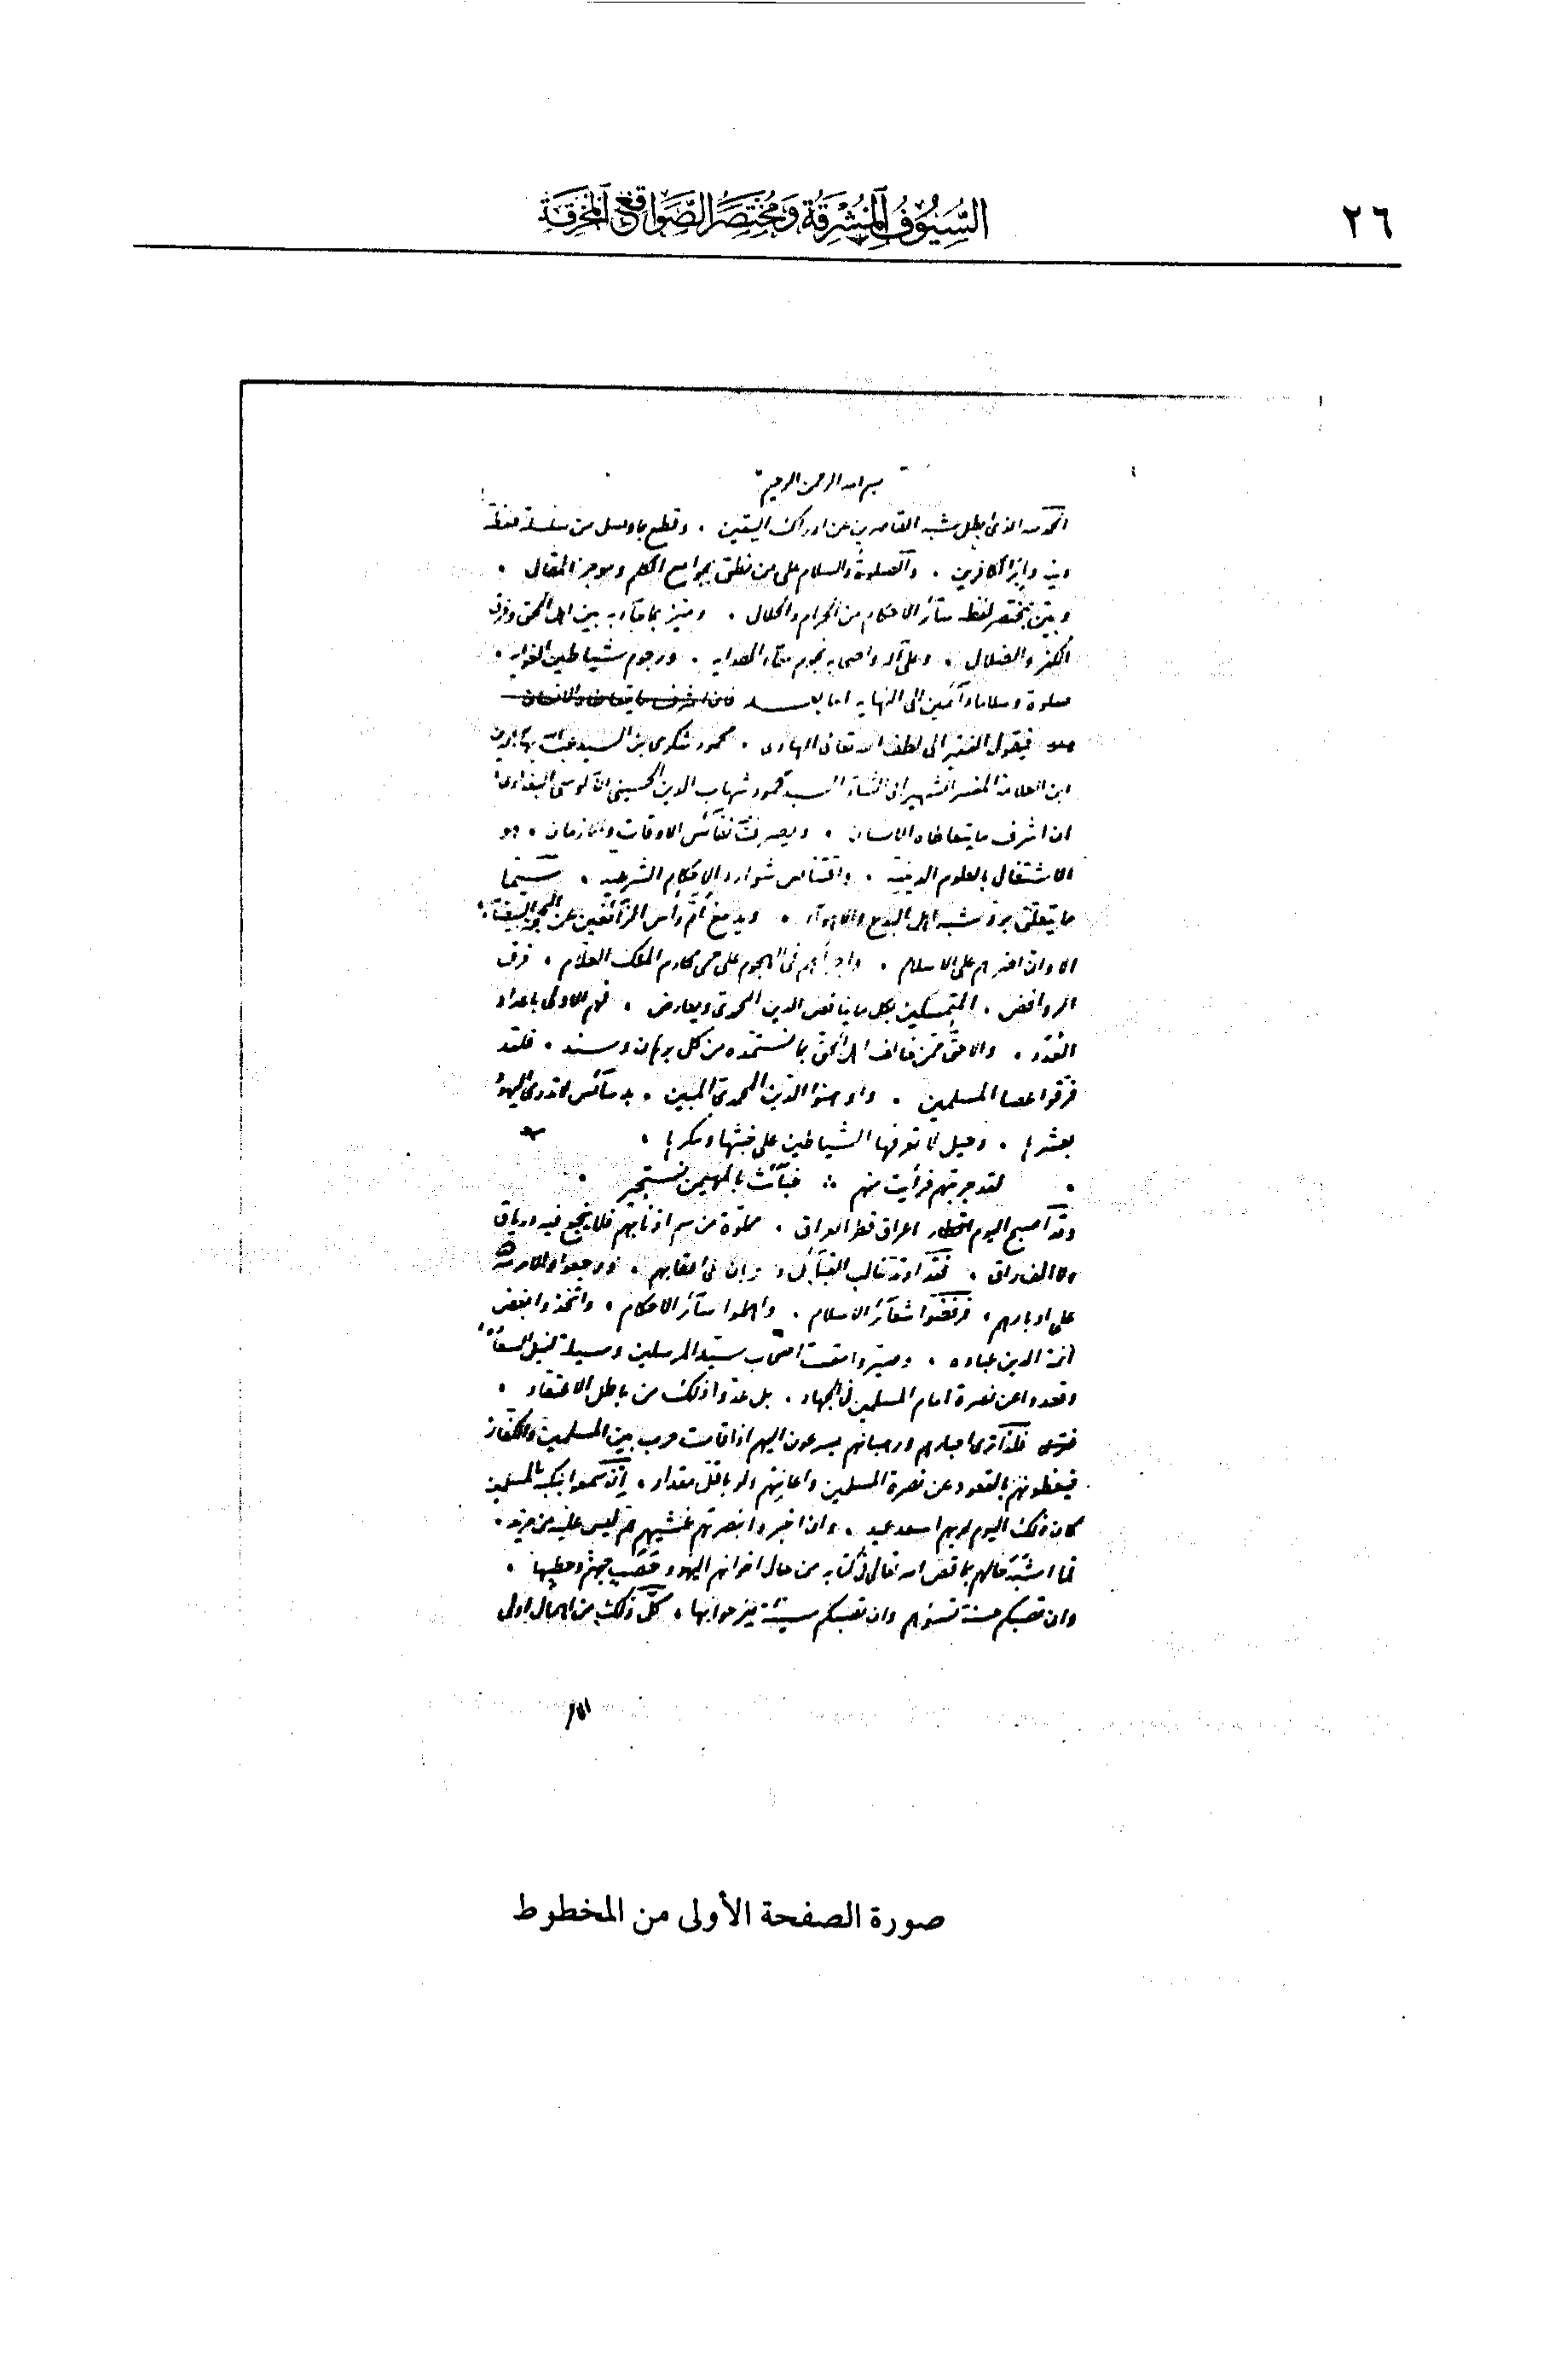 ٢٦
السيوف المشرقة ومختصر الصواقع المحرقة
بسم الله الرحمن الرحيم
الحمد لله الذي ابطل شبه القاصرين عن ادراك اليقين . وقطع
دابر الكافرين . والصلوة والسلام على من نطق بجوامع الكلم وموجز المقال .
وبين بمختصر لفظه سائر الاحكام من الحرام والحلال . وميز بما جاء به بين اهل الحق وفرق
الكفر والضلال . وعلى آله واصحابه نجوم سماء الهدايه . ورجوم شياطين الغوايه .
صلوة وسلاما دائمين الى النهايه اما بعد فان اشرف ما يتعاطاه الانسان
فيقول الفقير الى لطف الله تعالى الهادى . محمود شكري بن السيد عبد الله بهاء الدين
ابن العلامة المفسر الشهير ابي الثناء السيد محمود شهاب الدين الحسيني الآلوسي البغدادي
ان اشرف ما يتعاطاه الانسان . ويصرف نفائس الاوقات والازمان . هو
الاشتغال بالعلوم الدينية . واقتناص شوارد الاحكام الشرعيه . سيما
ما يتعلق برد شبه اهل البدع والاهواء . ويدمغ ام رأس الزائغين عن المحجة البيضاء
الا وان اضرهم على الاسلام . واجرأهم في الهجوم على حمى محارم الملك العلام . فرق
الروافض . المتمسكين بكل ما يناقض الدين المحمدي ويعارض . فهم الاولى باعداد
العدد . والاحق ممن خالف اهل الحق بما نستمده من كل برهان وسند . فلقد
فرقوا عصا المسلمين . واوهنوا الدين المحمدي المبين . بدسائس لا تدري اليهود
بعشرها . وحيل لا تعرفها الشياطين على خبثها ومكرها .
لقد جربتهم فرأيت منهم ∴ خبائث بالمهيمن نستجير .
وقد اصبح اليوم اقطار اعراق قطر العراق . مملوة من سم اذنابهم فلا ينجع فيه درياق
ولا الف راق . فقد ارتد غالب القبائل على اعقابهم . ورجعوا
على ادبارهم . فرفضوا شعائر الاسلام . واهملوا سائر الاحكام . واتخذوا بغض
ائمة الدين عباده . وصيروا مقت اصحاب سيد المرسلين وسيلة لنيل السعادة
وقعدوا عن نصرة امام المسلمين في الجهاد . بل عدوا ذلك من باطل الاعتقاد .
فلذا ترى احبارهم ورهبانهم يسرعون اليهم اذا قامت حرب بين المسلمين والكفار
فيعظونهم بالقعود عن نصرة المسلمين واعانتهم ولو باقل مقدار . ان سمعوا بنكبة بالمسلمين
كان ذلك اليوم لديهم اسعد عيد . وان اخبروا بنصرتهم غشيهم هم ليس عليه من مزيد .
فما اشبه حالهم بما قص الله تعالى في كتابه من حال اخوانهم اليهود
وان تمسكم حسنة تسؤهم وان تصبكم سيئة يفرحوا بها . كل ذلك من اهمال اولى
صورة الصفحة الأولى من المخطوط